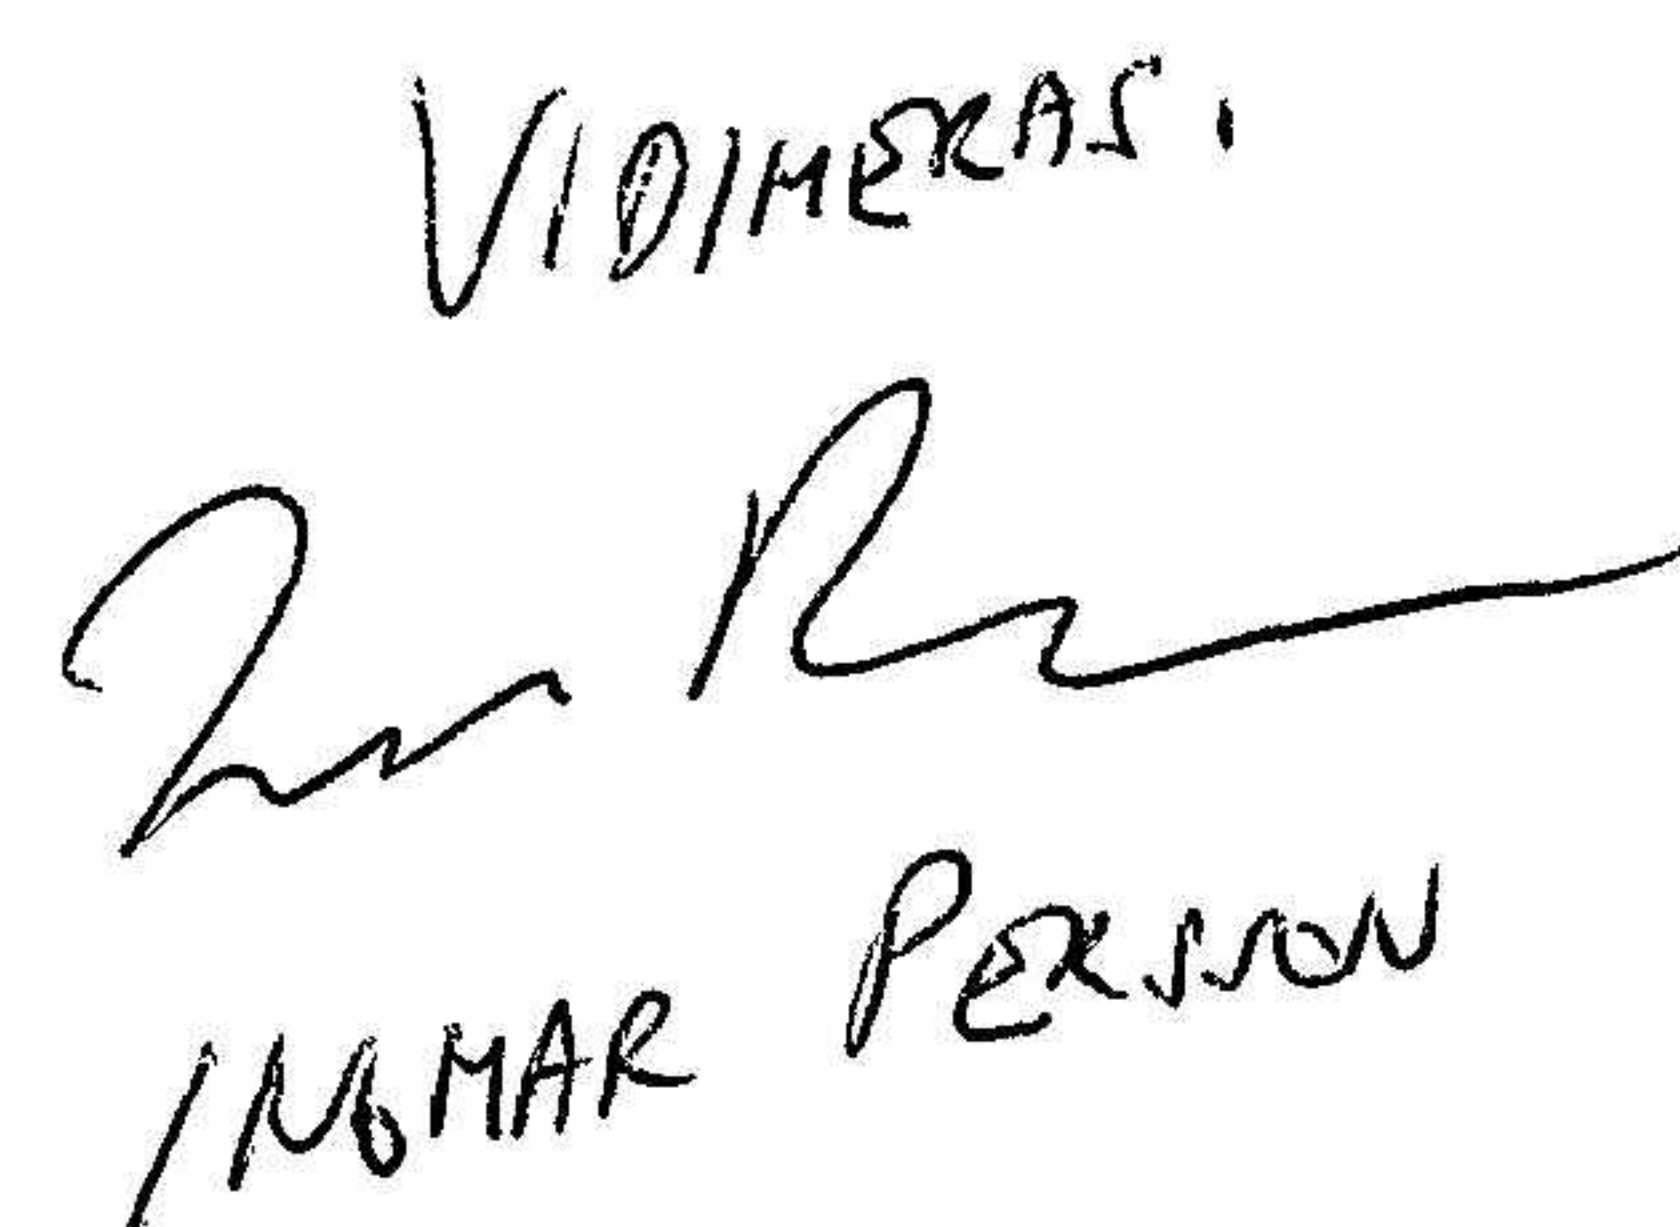 VIDIMERAS.
INGMAR PERSSON